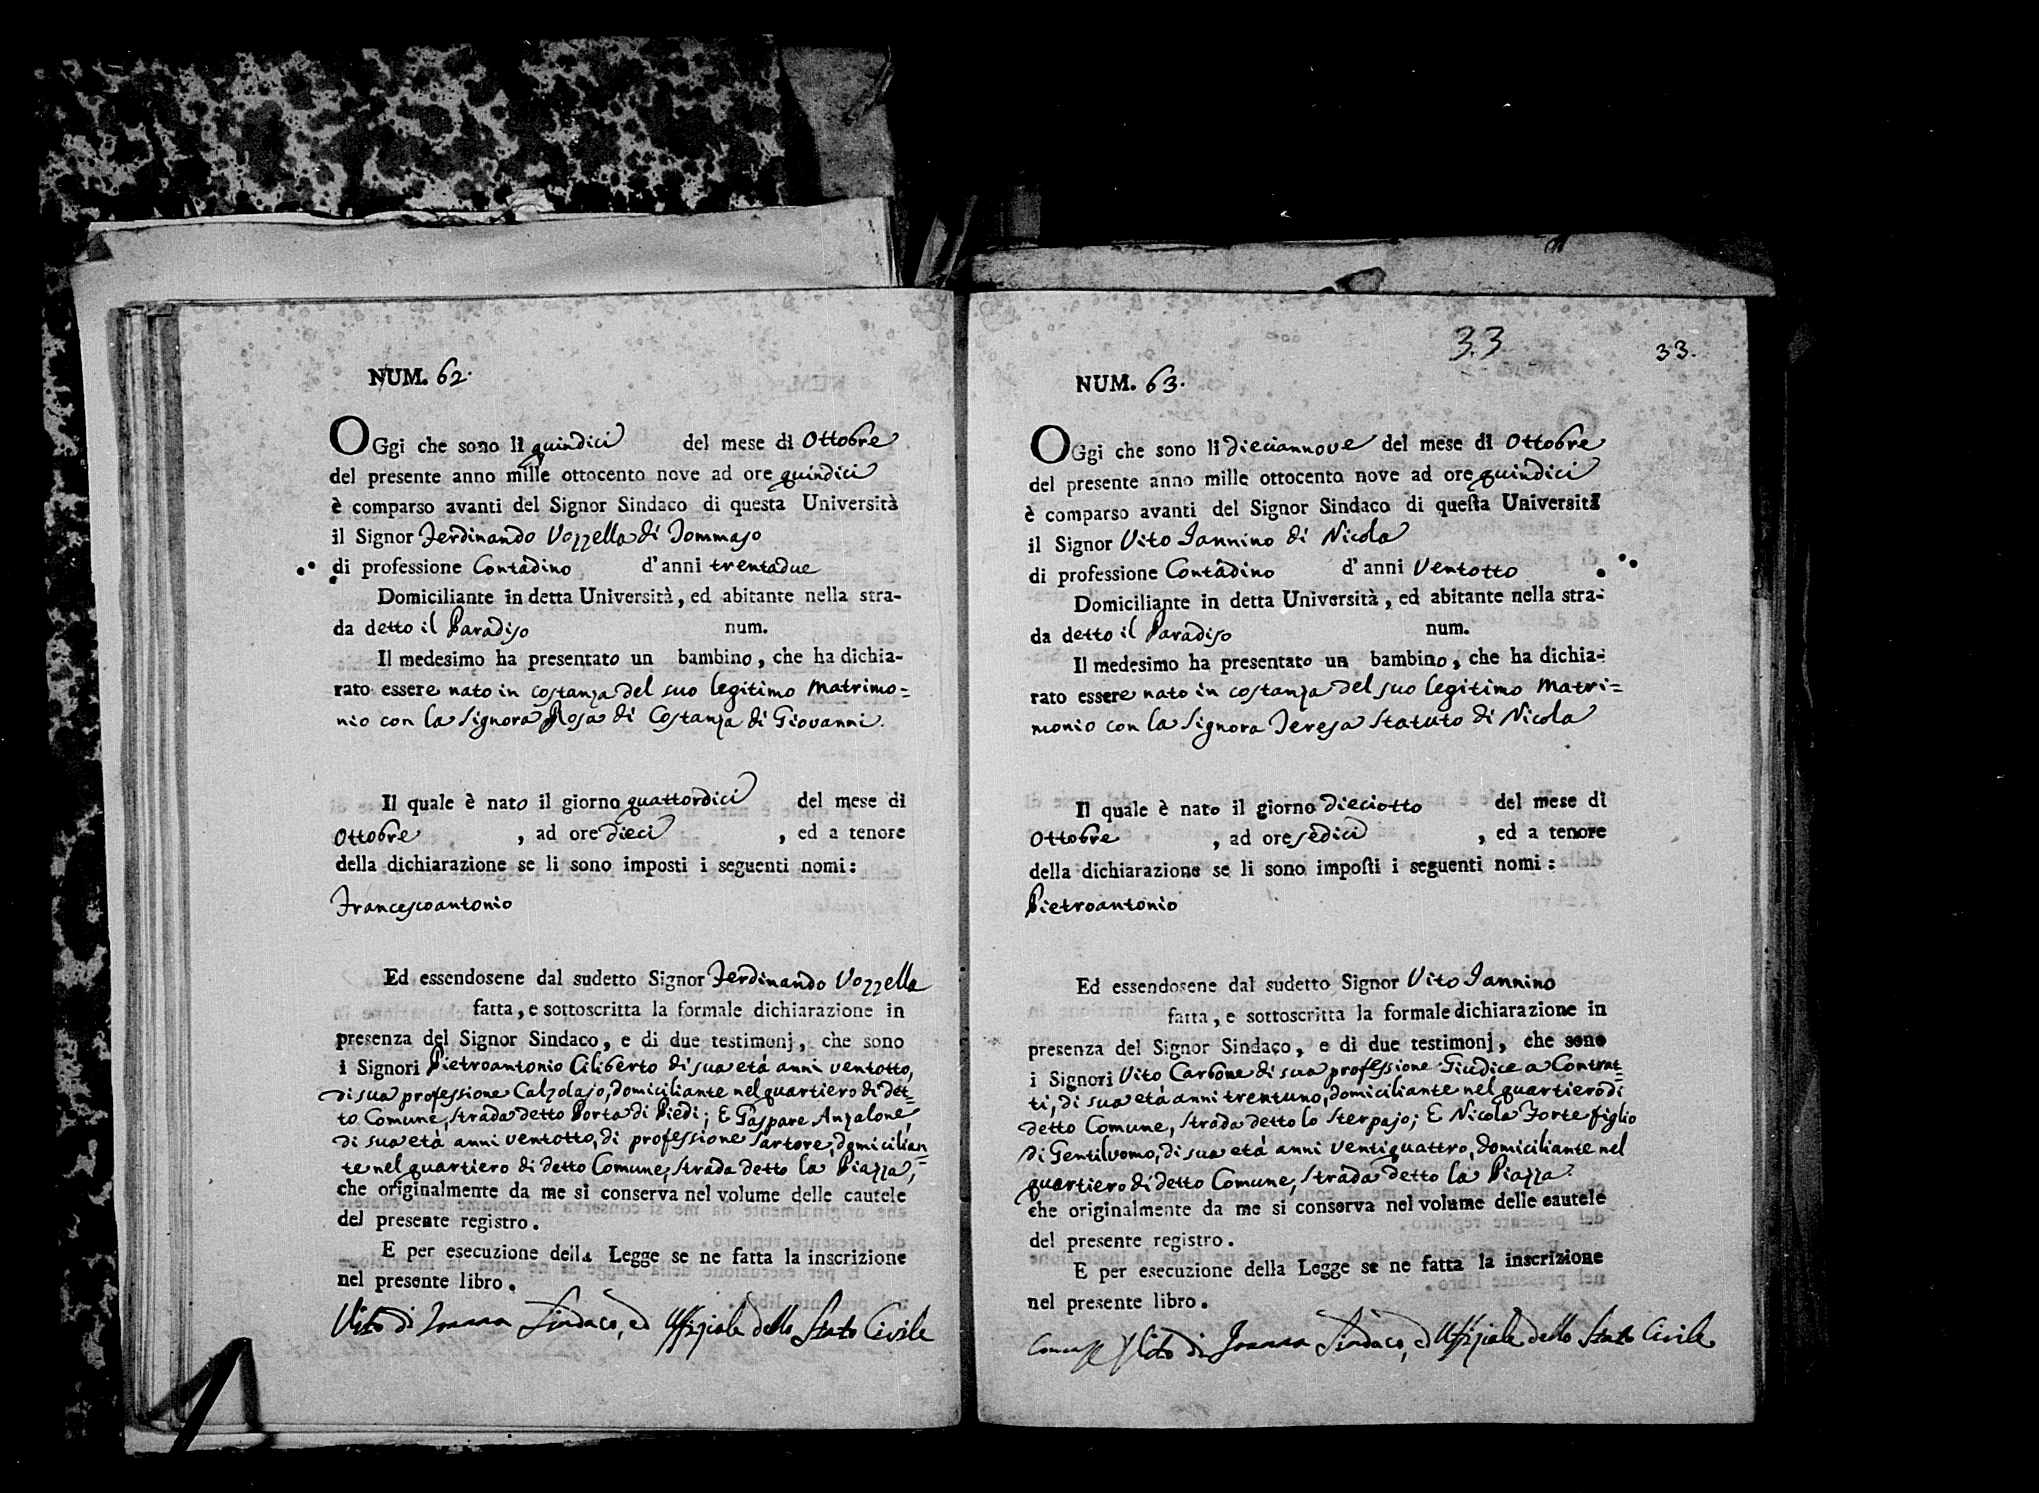 NUM. 62.
OGgi che sono li quindici del mese di Ottobre
del presente anno mille ottocento nove ad ore quindici
è comparso avanti del Signor Sindaco di questa Università
il Signor Ferdinando Vozzella di Tommaso
di professione Contadino d'anni trentadue
Domiciliante in detta Università, ed abitante nella stra-
da detto il Paradiso num.
Il medesimo ha presentato un bambino, che ha dichia-
rato essere nato in costanza del suo legitimo Matrimo=
nio con la Signora Rosa di Costanza di Giovanni.
Il quale è nato il giorno quattordici del mese di
Ottobre, ad ore dieci, ed a tenore
della dichiarazione se li sono imposti i seguenti nomi:
Francescoantonio
Ed essendosene dal sudetto Signor Ferdinando Vozzella
fatta, e sottoscritta la formale dichiarazione in
presenza del Signor Sindaco, e di due testimonj, che sono
i Signori Pietroantonio Ciliberto di sua età anni ventotto,
di sua professione Calzolajo, domiciliante nel quartiero di det=
to Comune, strada detto Porta di Piedi; E Gaspare Anzalone,
di sua età anni ventotto, di professione Sartore, domicilian=
te nel quartiero di detto Comune, strada detto la Piazza,
che originalmente da me si conserva nel volume delle cautele
del presente registro.
E per esecuzione della Legge se ne fatta la inscrizione
nel presente libro.
Vito di Joanna Sindaco, ed Uffiziale dello Stato Civile
33
33.
NUM. 63.
OGgi che sono li dieciannove del mese di Ottobre
del presente anno mille ottocento nove ad ore quindici
è comparso avanti del Signor Sindaco di questa Università
il Signor Vito Iannino di Nicola
di professione Contadino d'anni Ventotto
Domiciliante in detta Università, ed abitante nella stra-
da detto il Paradiso num.
Il medesimo ha presentato un bambino, che ha dichia-
rato essere nato in costanza del suo legitimo Matri=
monio con la Signora Teresa Statuto di Nicola
Il quale è nato il giorno dieciotto del mese di
Ottobre, ad ore sedici, ed a tenore
della dichiarazione se li sono imposti i seguenti nomi:
Pietroantonio
Ed essendosene dal sudetto Signor Vito Iannino
fatta, e sottoscritta la formale dichiarazione in
presenza del Signor Sindaco, e di due testimonj, che sono
i Signori Vito Carbone di sua professione Giudice a Contrat=
ti, di sua età anni trentuno, domiciliante nel quartiero di
detto Comune, strada detto lo Sterpajo; E Nicola Forte figlio
di Gentiluomo, di sua età anni ventiquattro, domiciliante nel
quartiero di detto Comune, strada detto la Piazza.
che originalmente da me si conserva nel volume delle cautele
del presente registro.
E per esecuzione della Legge se ne fatta la inscrizione
nel presente libro.
Vito di Joanna Sindaco, ed Uffiziale dello Stato Civile